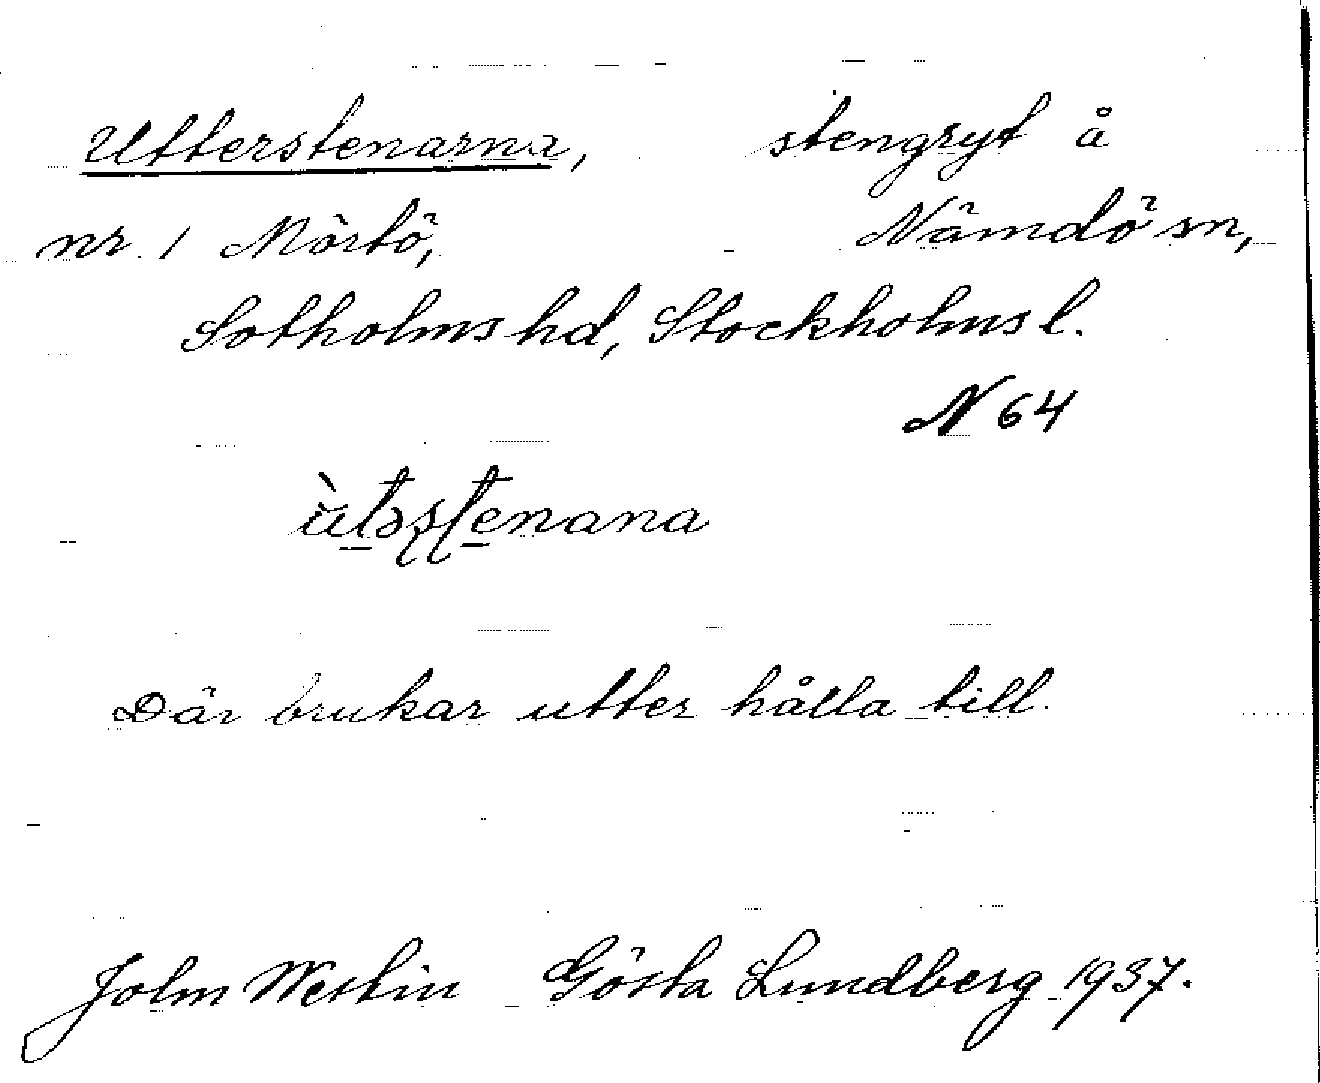 Utterstenarna, stengryt å
nr. 1 Mörtö, Nämdö sn,
Sotholms hd, Stockholms l.
N 64
ùtəʂʈenana
Där brukar utter hålla till.
John Westin Gösta Lundberg 1937.